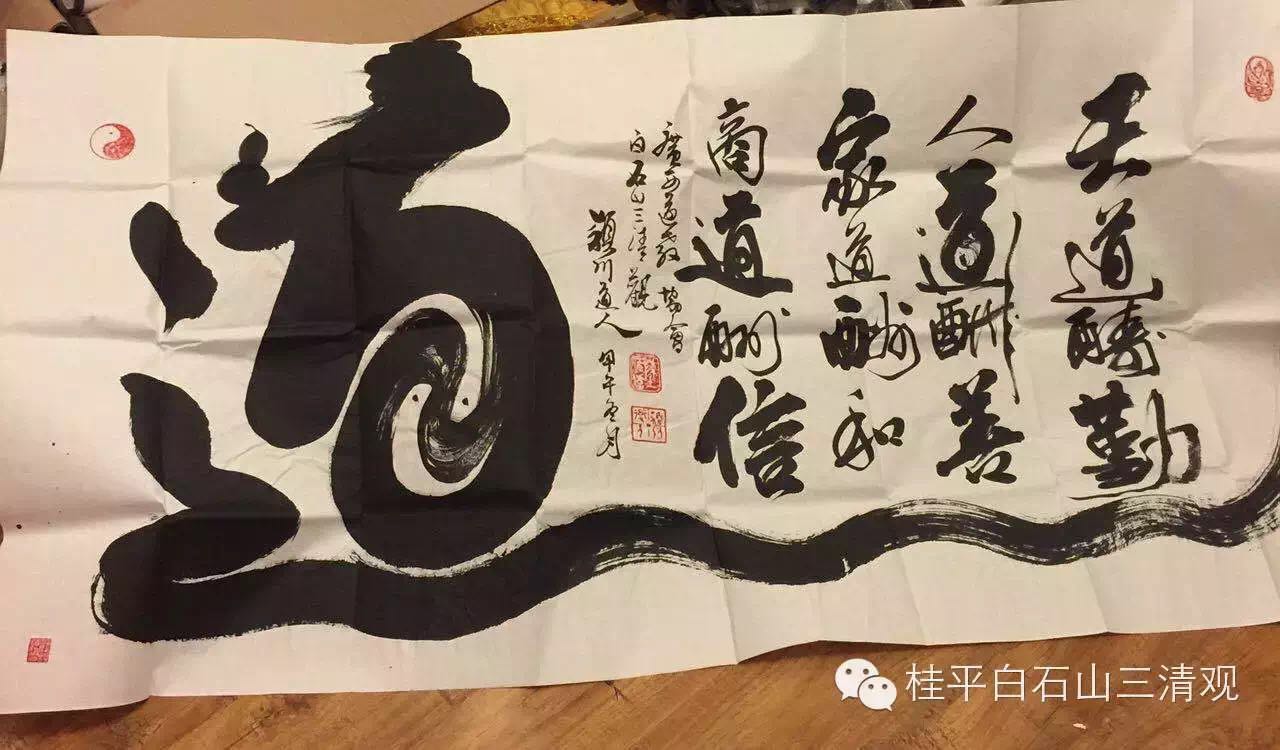 天道酬勤
人道酬善
家道酬和
商道酬信
廣西道教協會
白石山三清觀
穎川道人
甲午冬月
道
桂平白石山三清观